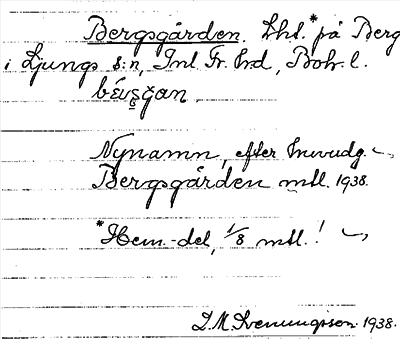 Bergsgården. Lht.* på Berg
i Ljungs s:n, Inl. Fr. hd, Boh. l.
bévs̬ǧan.
Nynamn, efter huvudg.
Bergsgården mtl. 1938.
*Hem.-del, 1/8 mtl.!
1938.